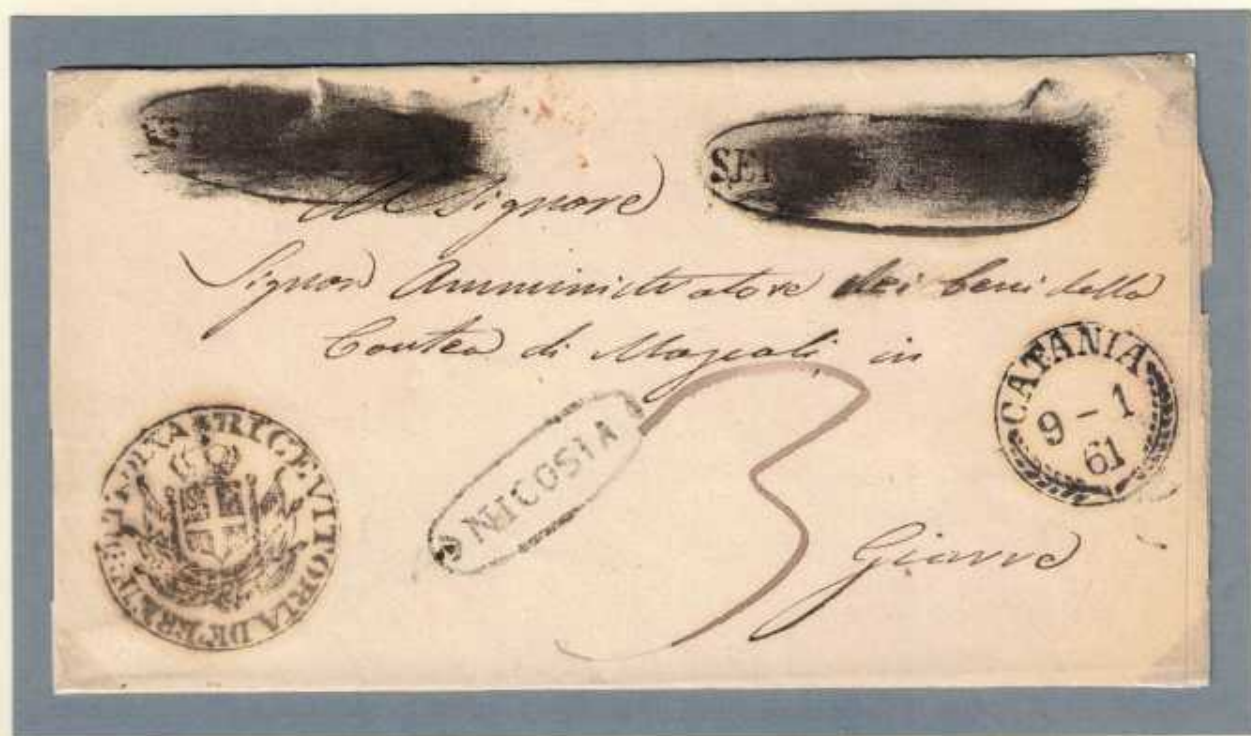 SE
Al Signore
Signor Amministratore dei beni della
Contea di Mascali in
CATANIA
9 - 1
61
NICOSIA
3
RICEVITORIA DE'
Giarre